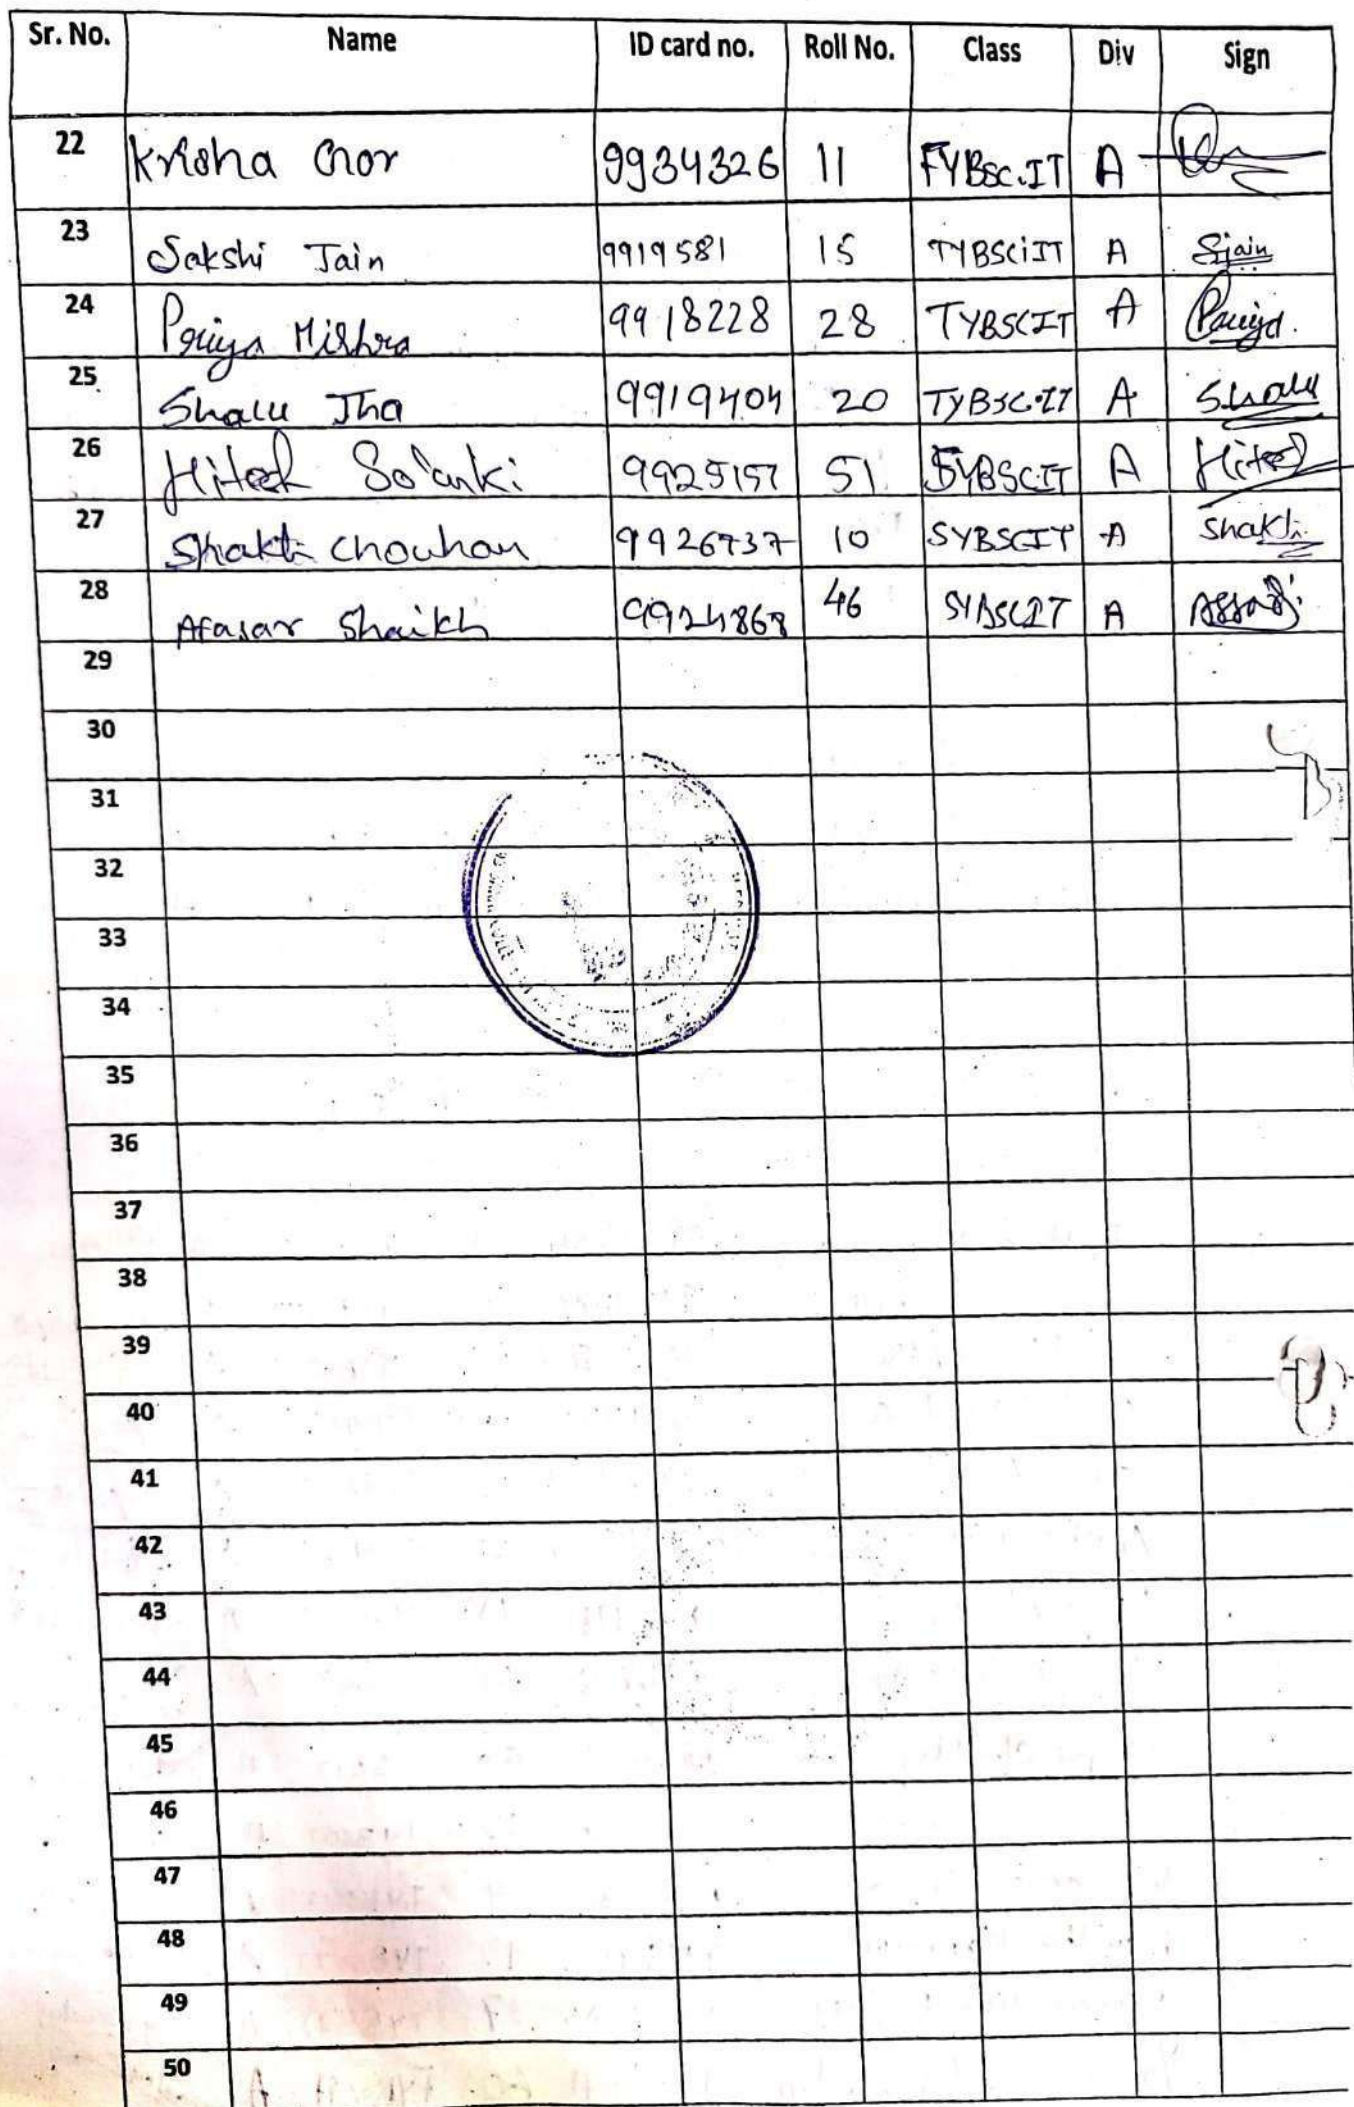 Sr. No. Name ID card no. Roll No. Class Div Sign
22 Krisha Gor 9934326 11 FYBSC.IT A
23 Sakshi Jain 9919581 15 TYBSCIT A Sjain
24 Priya Mishra 9918228 28 TYBSCIT A Priya.
25 Shalu Jha 9919404 20 TYBSC.IT A Shalu
26 Hitesh Solanki 9925157 51 SYBSCIT A Hitesh
27 Shakti Chouhan 9926737 10 SYBSCIT A Shakti
28 Afasar Shaikh 9924868 46 SYBSCIT A
29
30
31
32
33
34
35
36
37
38
39
40
41
42
43
44
45
46
47
48
49
50